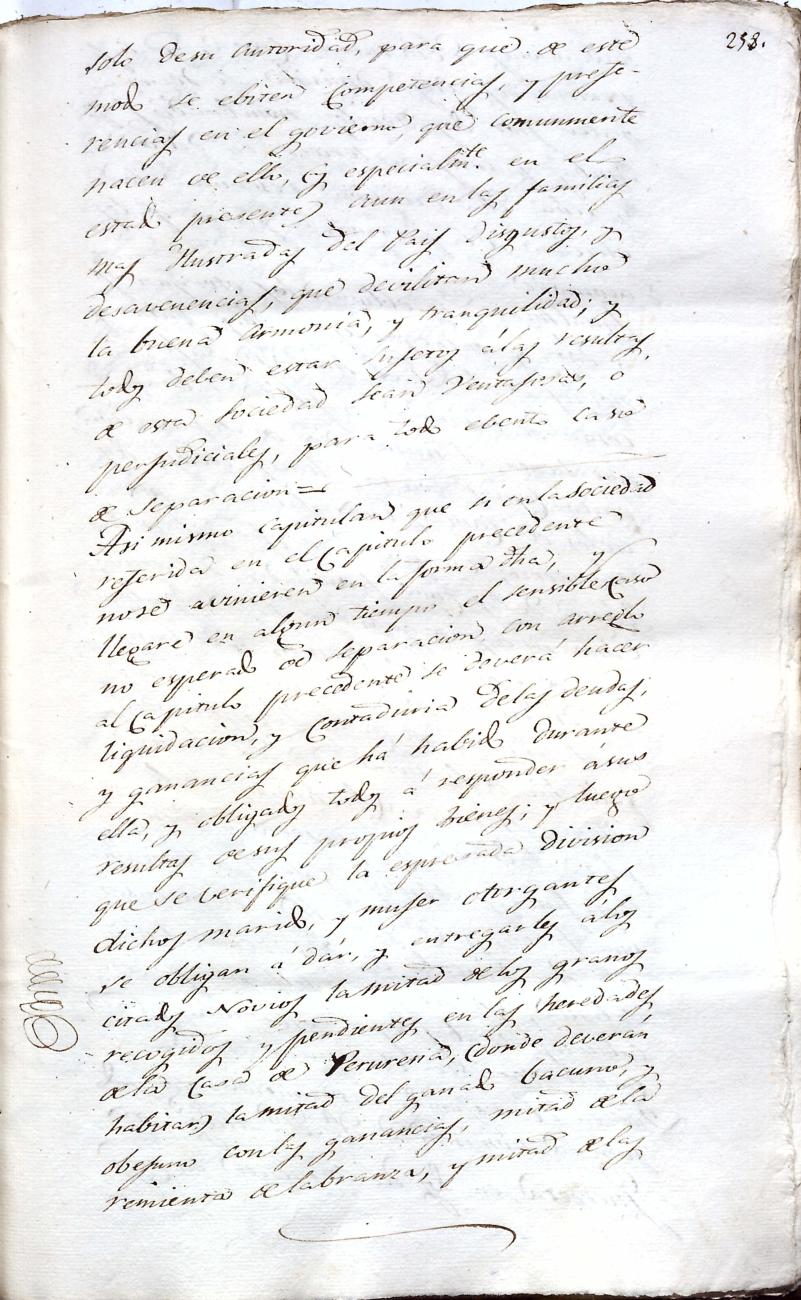 258.
solo de su autoridad, para que de este
modo se ebiten Competencias, y prefe-
rencias en el govierno, que comunmente
nacen de ello, (y especialmte. en el
estado presente) aun en las familias
mas Ilustradas del Pais disgustos, y
desavenencias, que devilitan mucho
la buena armonia, y tranquilidad; y
todos deben estar sujetos á las resultas,
de esta Sociedad sean Ventajosas, o
perjudiciales, para todo ebento caso
de separacion =
Asi mismo Capitulan que si en la Sociedad
referida en el Capitulo precedente
no se avinieren en la forma dha, y
llegare en algun tiempo el sensible caso
no esperado de separacion con arreglo
al Capitulo precedente se deverá hacer
liquidacion, y Contaduria de las deudas,
y ganancias que há habido durante
ella, y obligados todos á responder á sus
resultas de sus propios bienes; y luego
que se verifique la espresada division
dichos marido, y muger otorgantes
se obligan á dár, y entregarles á los
citados Novios la mitad de los granos
recogidos y pendientes en las heredades
de la Casa de Perurena, (donde deverán
habitar) la mitad del ganado bacuno, y
obejuno con las ganancias, mitad de la
remienta de labranza, y mitad de las